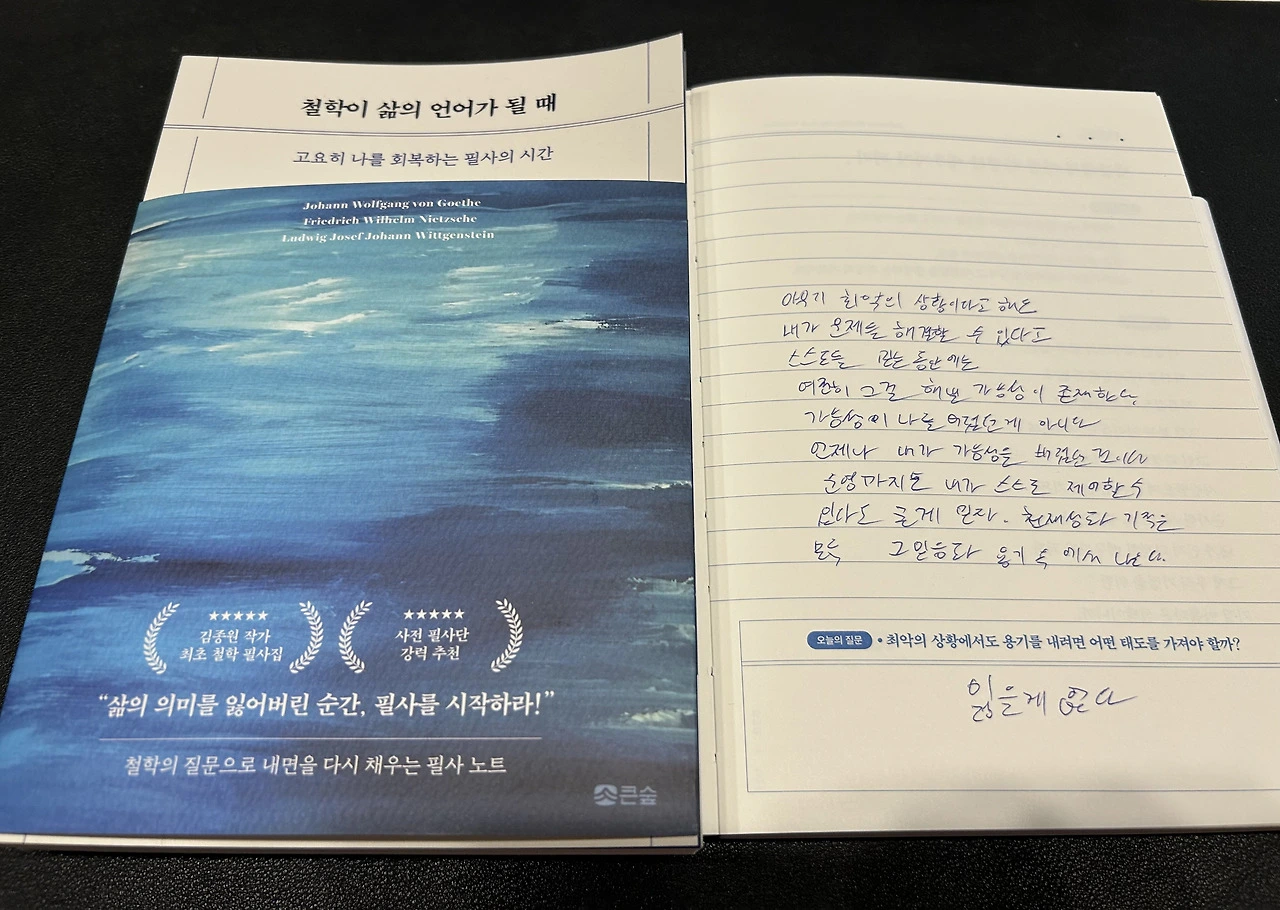 철학이 삶의 언어가 될 때
고요히 나를 회복하는 필사의 시간
Johann Wolfgang von Goethe
Friedrich Wilhelm Nietzsche
Ludwig Josef Johann Wittgenstein
★★★★★
김종원 작가
최초 철학 필사집
★★★★★
사전 필사단
강력 추천
“삶의 의미를 잃어버린 순간, 필사를 시작하라!”
철학의 질문으로 내면을 다시 채우는 필사 노트
큰숲
아무리 최악의 상황이라고 해도
내가 문제를 해결할 수 있다고
스스로를 믿는 동안에는
여전히 그걸 해낼 가능성이 존재한다.
가능성이 나를 버린게 아니다
언제나 내가 가능성을 버렸던 것이다
운명까지도 내가 스스로 제어할 수
있다고 굳게 믿자. 천재성과 기적은
모두 그 믿음과 용기 속에서 나온다.
오늘의 질문 • 최악의 상황에서도 용기를 내려면 어떤 태도를 가져야 할까?
잃을게 없다